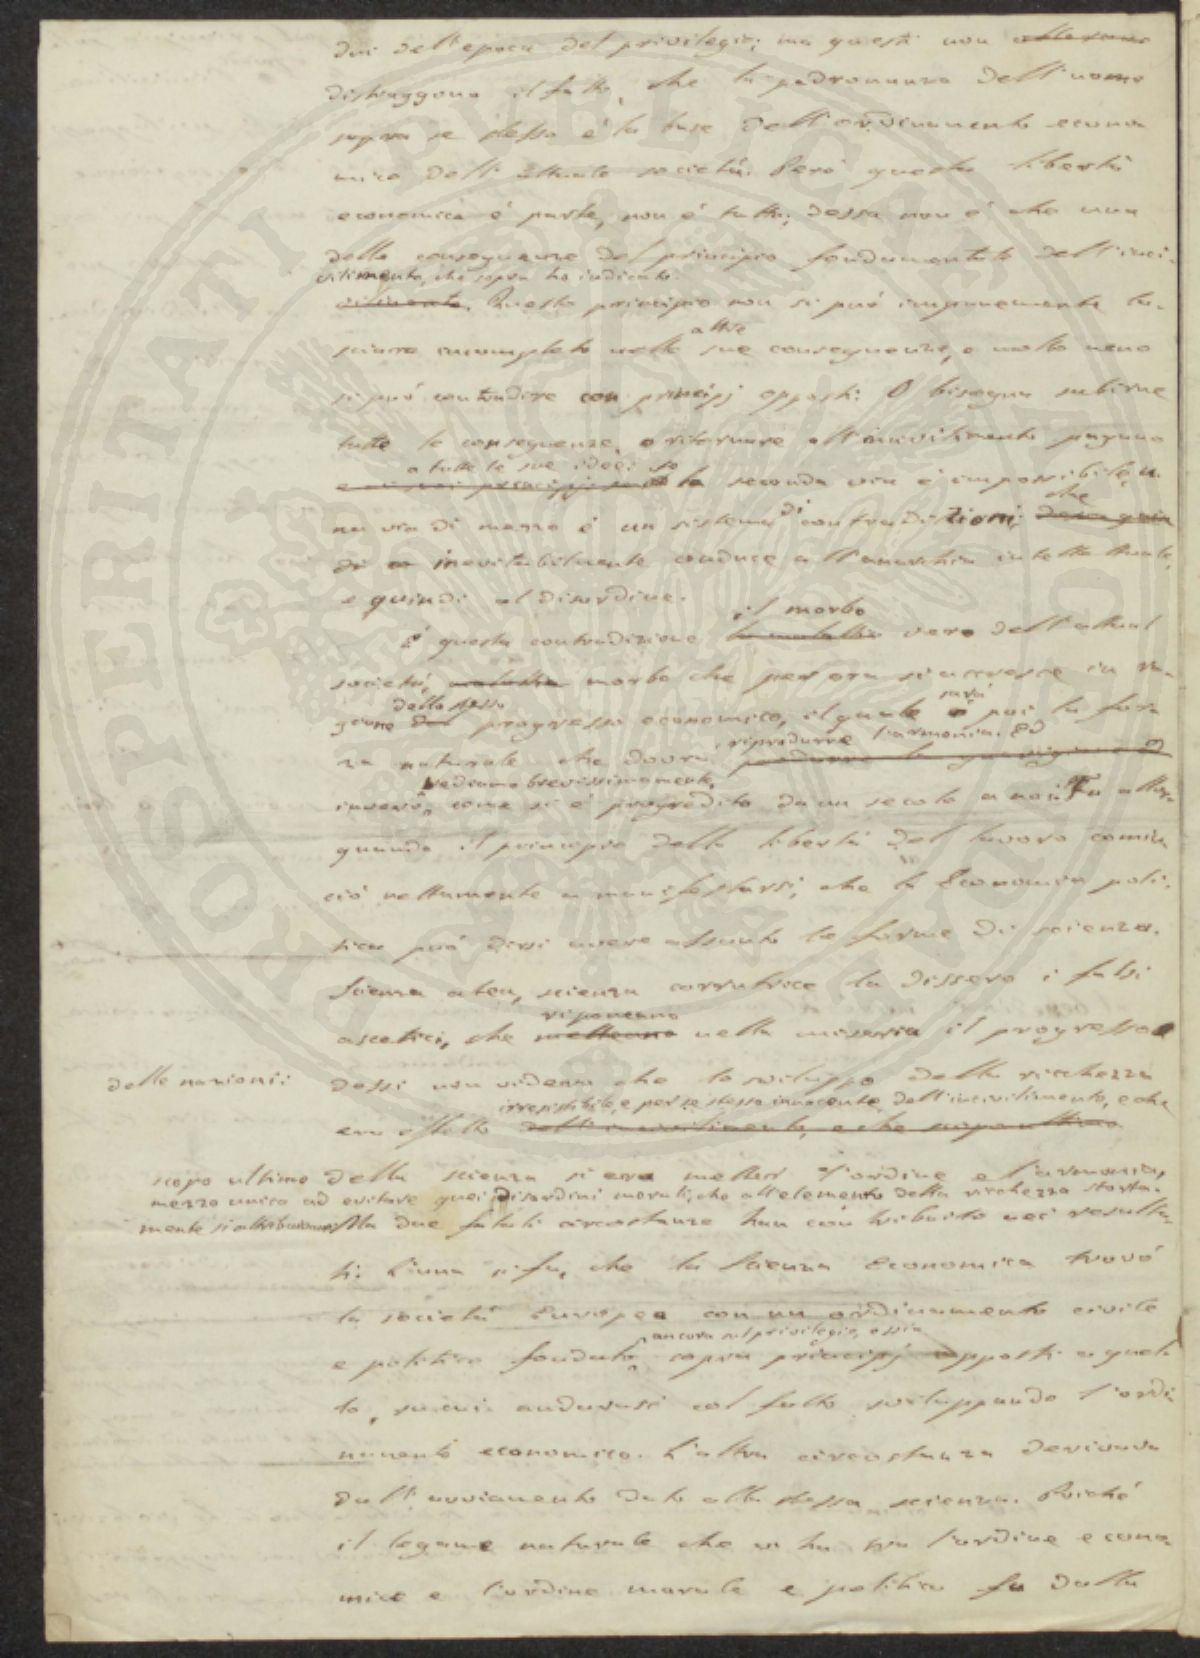 dui dell'epoca del privilegio; ma questi non
distruggono il fatto, che la padronanza dell'uomo
sopra se stesso è la base dell'ordinamento econo
mico dell'attuale società. Però questa libertà
economica è parte, non è tutto; dessa non è che una
delle conseguenze del principio fondamentale dell'inci-
vilimento, che sopra ho indicato.
vilimento. Questo principio non si può impunemente la-
altre
sciare incompleto nelle sue conseguenze, e molto meno
si può contradire con principj opposti: O bisogna subirne
tutte le conseguenze, o ritornare all'incivilimento pagano
a tutte le sue idee: se
e ai suoi principj la seconda via è impossibile, u-
di che
na via di mezzo è un sistema contradizioni;
di inevitabilmente conduce all'anarchia intellettuale,
e quindi al disordine.
il morbo
È questa contradizione la malattia vero dell'attual
società, malattia morbo che per ora si accresce in ra-
dello stesso sarà
gione del progresso economico, il quale è poi la for
riprodurre l'armonia. Ed
za naturale che dovrà
vediamo brevissimamente,
invero, come si è progredito da un secolo a noi. Fu allora
quando il principio della libertà del lavoro comin
ciò nettamente a manifestarsi, che la Economia poli-
tica può dirsi avere assunto le forme di scienza.
Scienza atea, scienza corrutrice la dissero i falsi
riponeano
ascetici, che metteano nella miseria il progresso
delle nazioni: dessi non videro che lo sviluppo della ricchezza
irresistibile, e per se stesso innocente, dell'incivilimento, e che
era effetto dell'incivilimento, e che scopo ultimo
scopo ultimo della scienza si era metter l'ordine e l'armonia,
mezzo unico ad evitare quei disordini morali, che all'elemento della ricchezza storta-
mente si attribuivano. Ma due fatali circostanze han contribuito nei resulta-
ti. L'una si fu, che la Scienza Economica trovò
la società Europea con un ordinamento civile
ancora sul privilegio, ossia
e politico fondato sopra principj opposti a quel-
lo, su cui andavasi col fatto sviluppando l'ordi
namento economico. L'altra circostanza derivava
dall'avviamento dato alla stessa scienza. Poiché
il legame naturale che vi ha tra l'ordine econo-
mico e l'ordine morale e politico fu dalla